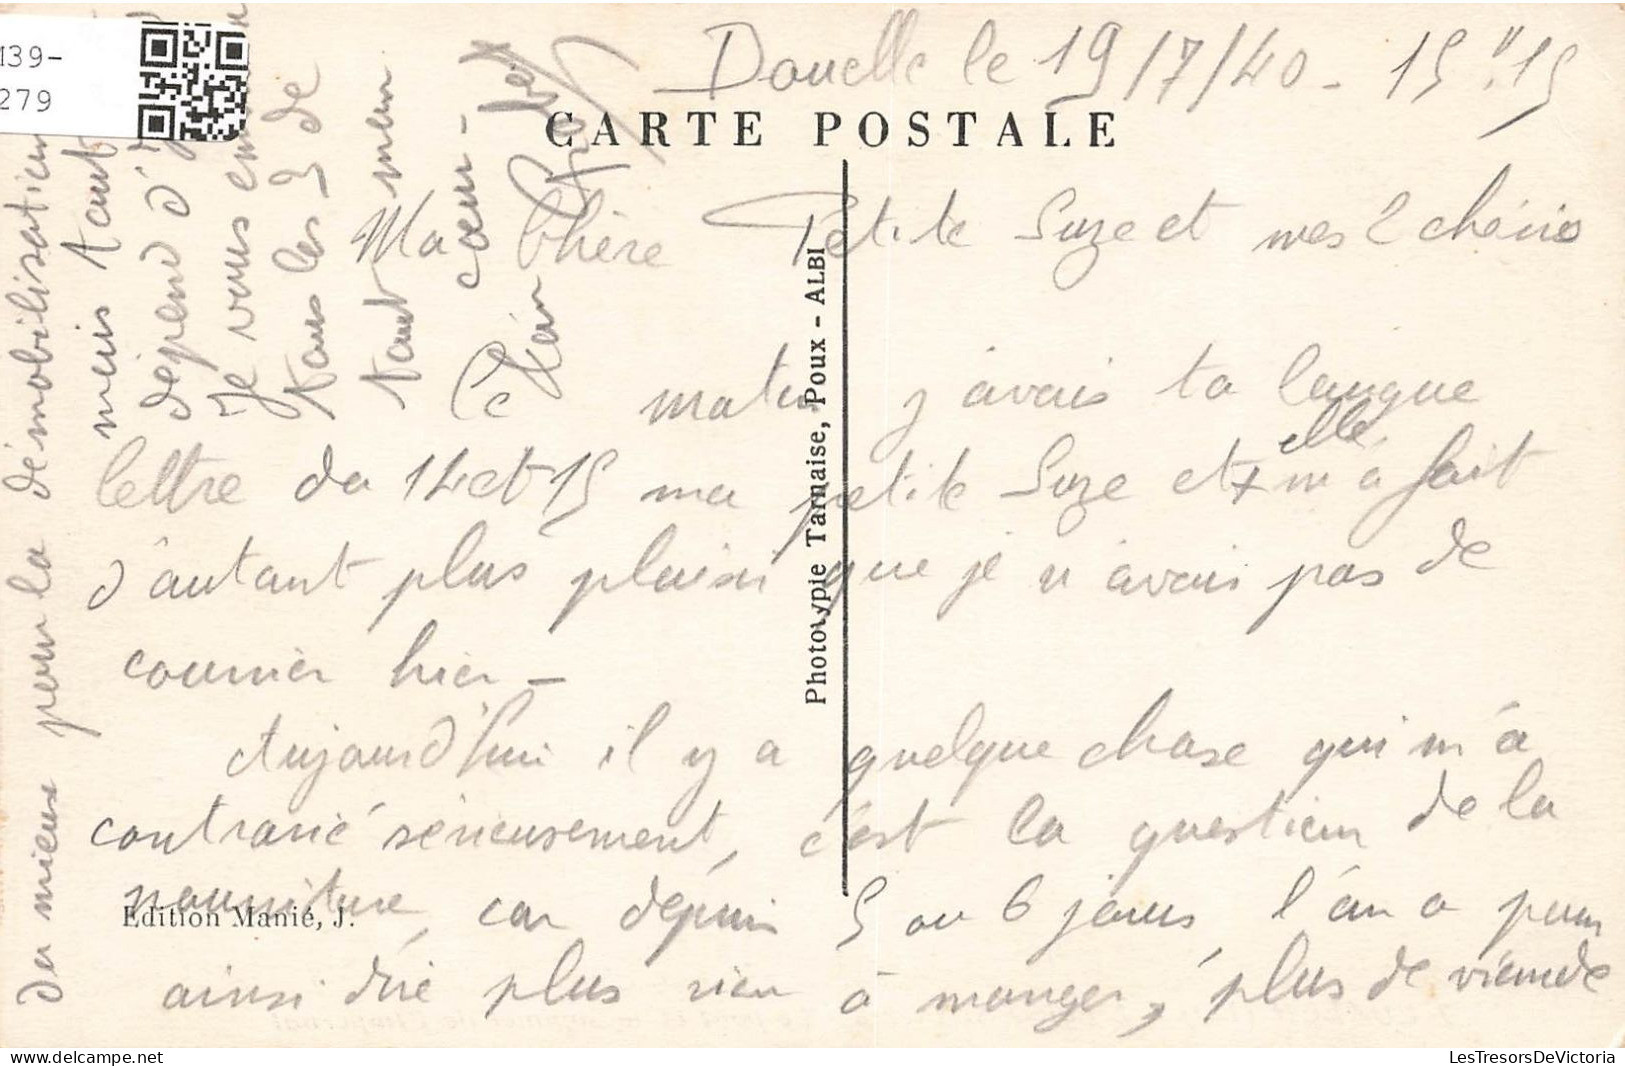 M39-
279
Douelle le 19/7/40 - 15"15
CARTE POSTALE
Ma Chère Petite Suze et mes 2 chéris
Ce matin j'avais ta langue
lettre da 14 et 15 ma petite Suze et elle m'a fait
d'autant plus plaisir que je n'avais pas de
courrier hier -
Aujourd'hui il y a quelque chose qui m'a
contrarié sérieusement, c'est la question de la
nourriture, car dépuis 5 ou 6 jours l'on a pour
ainsi dire plus rien à manger, plus de viande
Edition Manié, J.
Phototypie Tarnaise, Poux - ALBI
du mieux pour la démobilisation
mais tout
dépend d'
Je vous em
tous les 3 de
tout mon
cœur -
LesTresorsDeVictoria.com